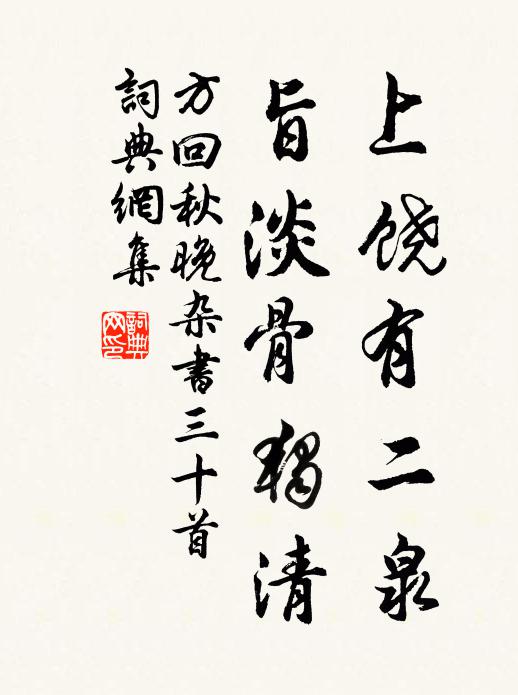 上饶有二泉
旨淡骨獨清
方回秋晚杂書三十首
詞典網集
詞典網印